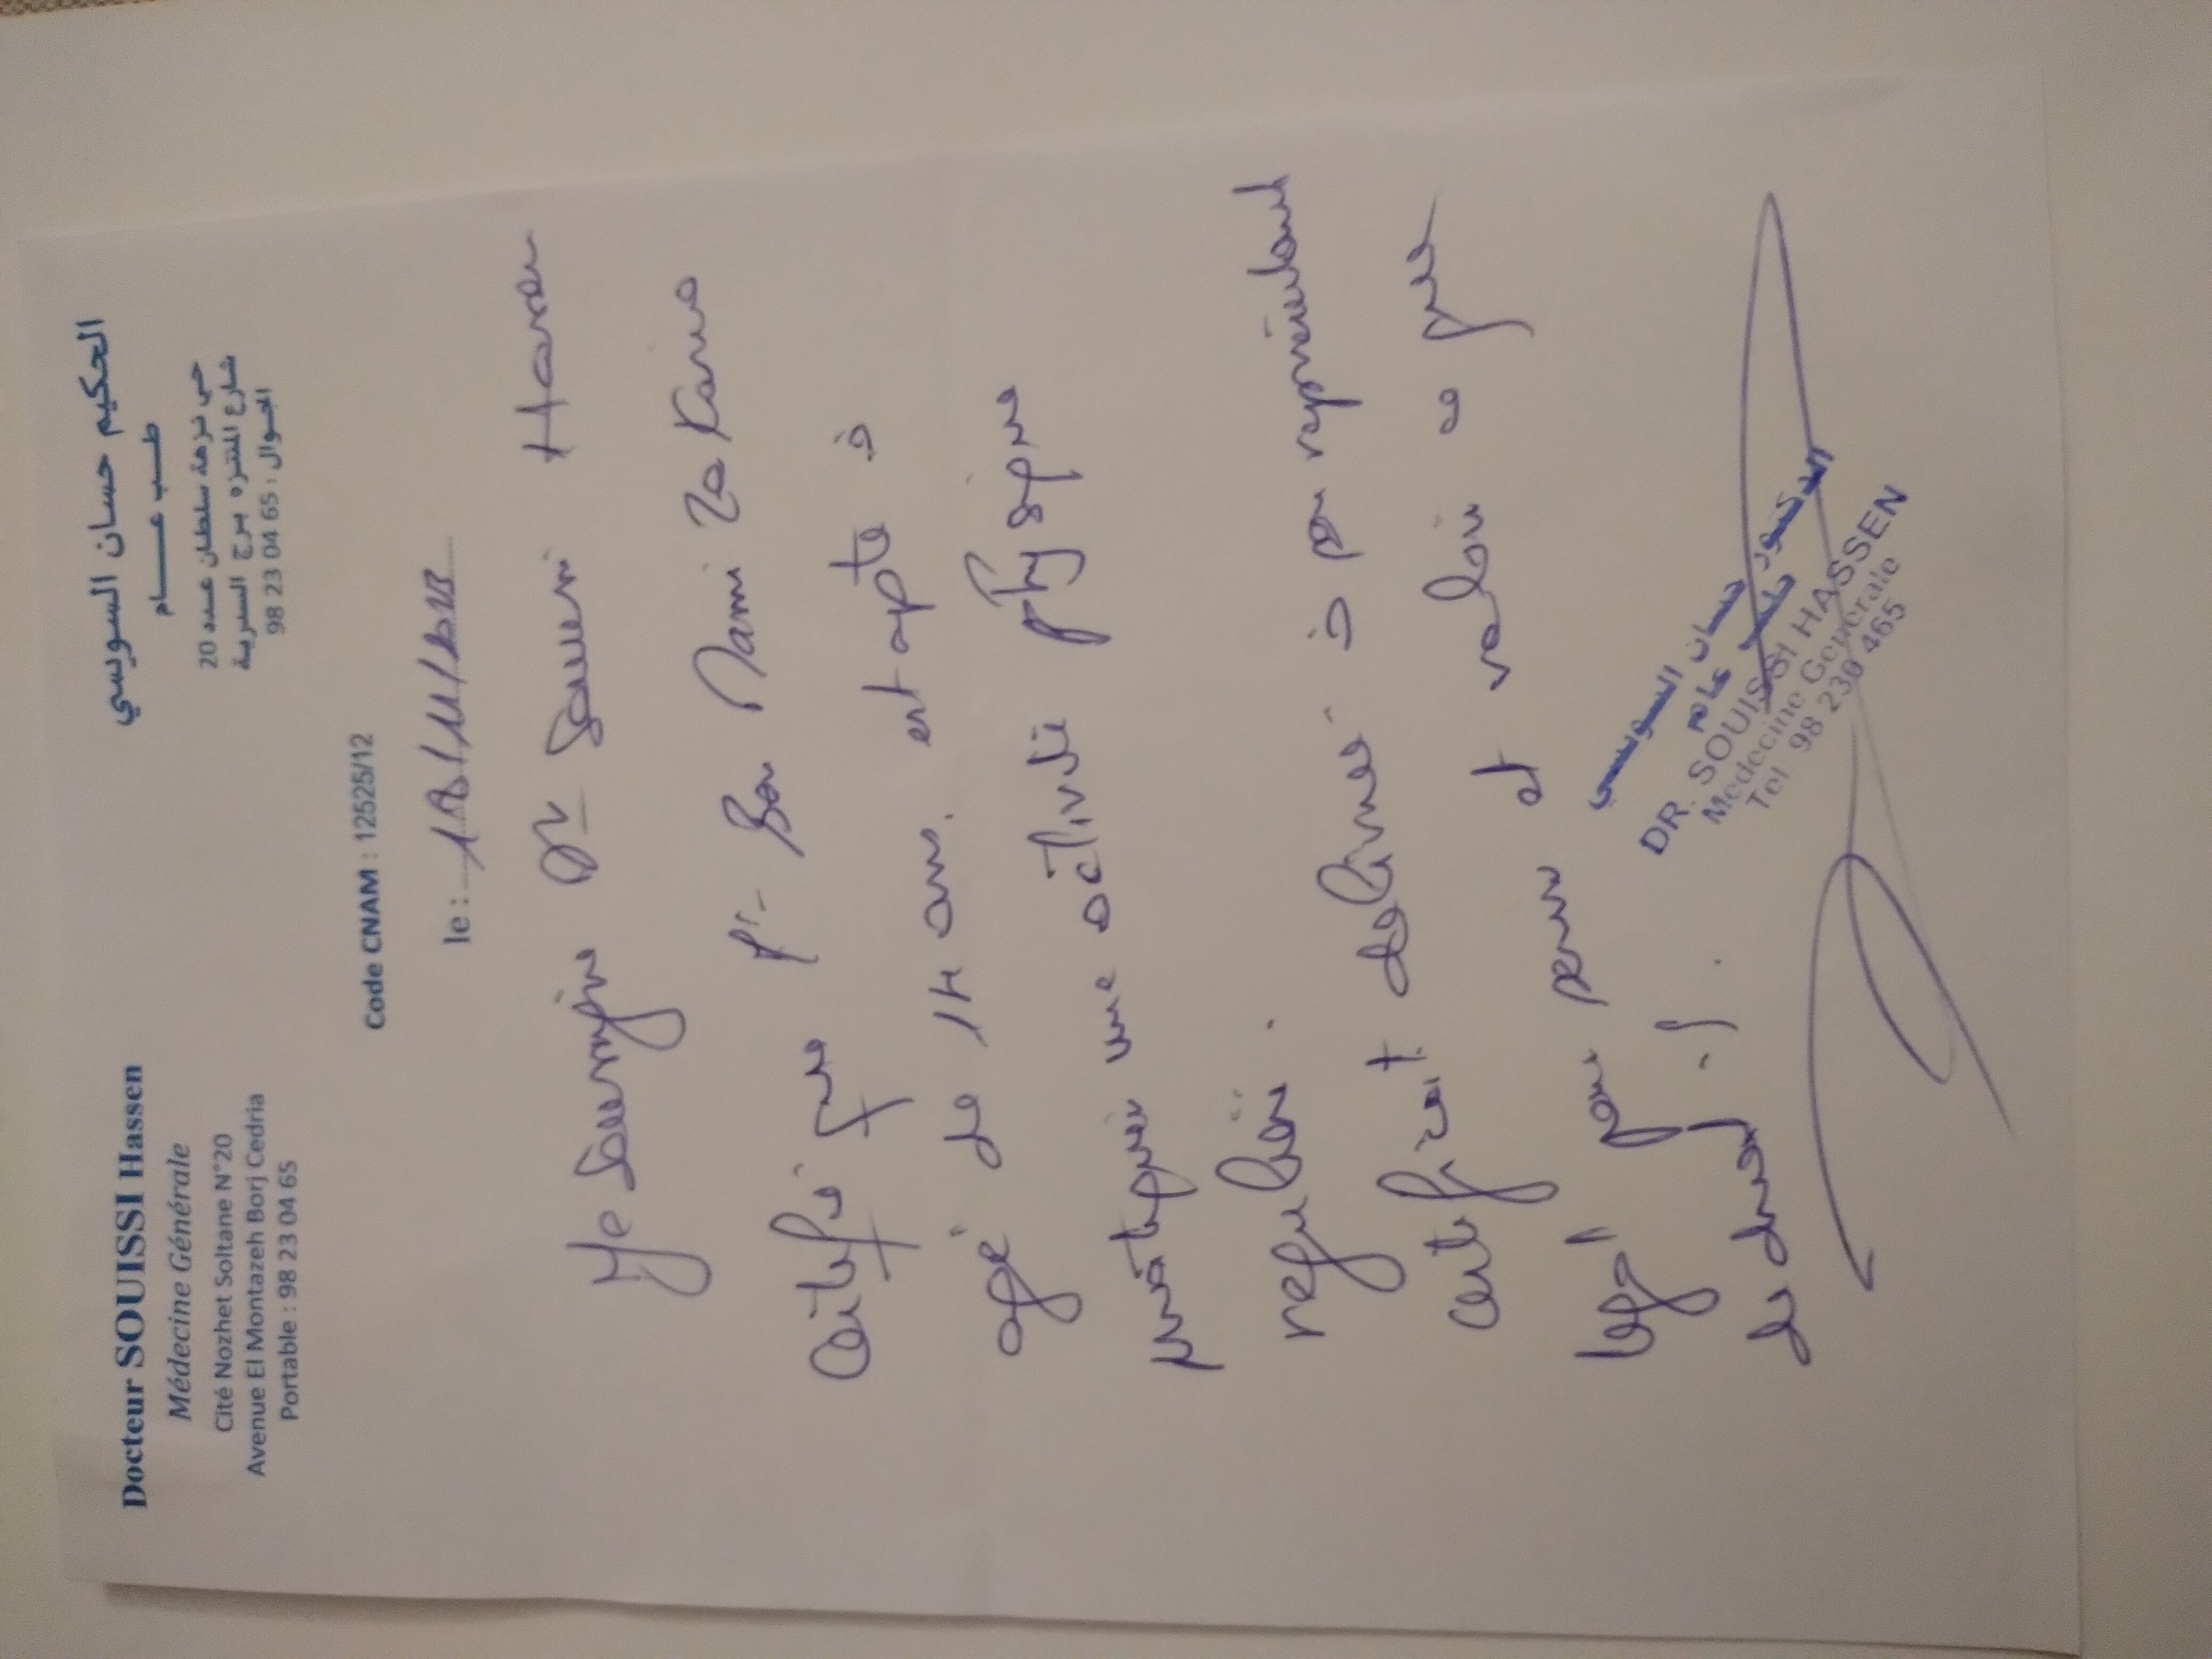 Docteur SOUISSI Hassen
Médecine Générale
Cité Nozhet Soltane N°20
Avenue El Montazeh Borj Cedria
Portable : 98 23 04 65
الحكيم حسان السويسي
طب عام
حي نزهة سلطان عدد 20
شارع المنتزه برج السدرية
الجوال : 98 23 04 65
Code CNAM : 12525/12
le :
Je Soussigné Dr Souissi Hassen
Certifie que Ben
agé de 14 ans. est apte à
pratiquer une activité physique
regulière.
certificat delivré à son représentant
légal pour servir et valoir ce que
de droit.
الدكتور حسان السويسي
طب عام
DR. SOUISSI HASSEN
Medecine Generale
Tel 98 230 465